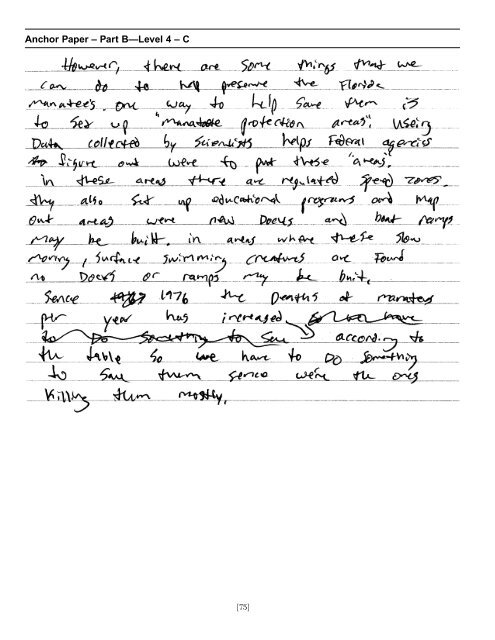 Anchor Paper – Part B—Level 4 – C
However, there are some things that we
can do to help preserve the Florida
manatees. one way to help save them is
to set up "manatee protection areas". useing
Data collected by scientists helps Federal agencies
to figure out were to put these "areas".
in these areas there are regulated speed zones.
they also set up educational programs and map
out areas were new Docks and boat ramps
may be built. in areas where these slow
moving, surface swimming creatures are Found
no Docks or ramps may be buit.
Sence 1976 the Deaths of manatees
per year has increased so we have
to Do something to save according to
the table so we have to DO something
to save them sence we're the ones
Killing them mostly.
[75]